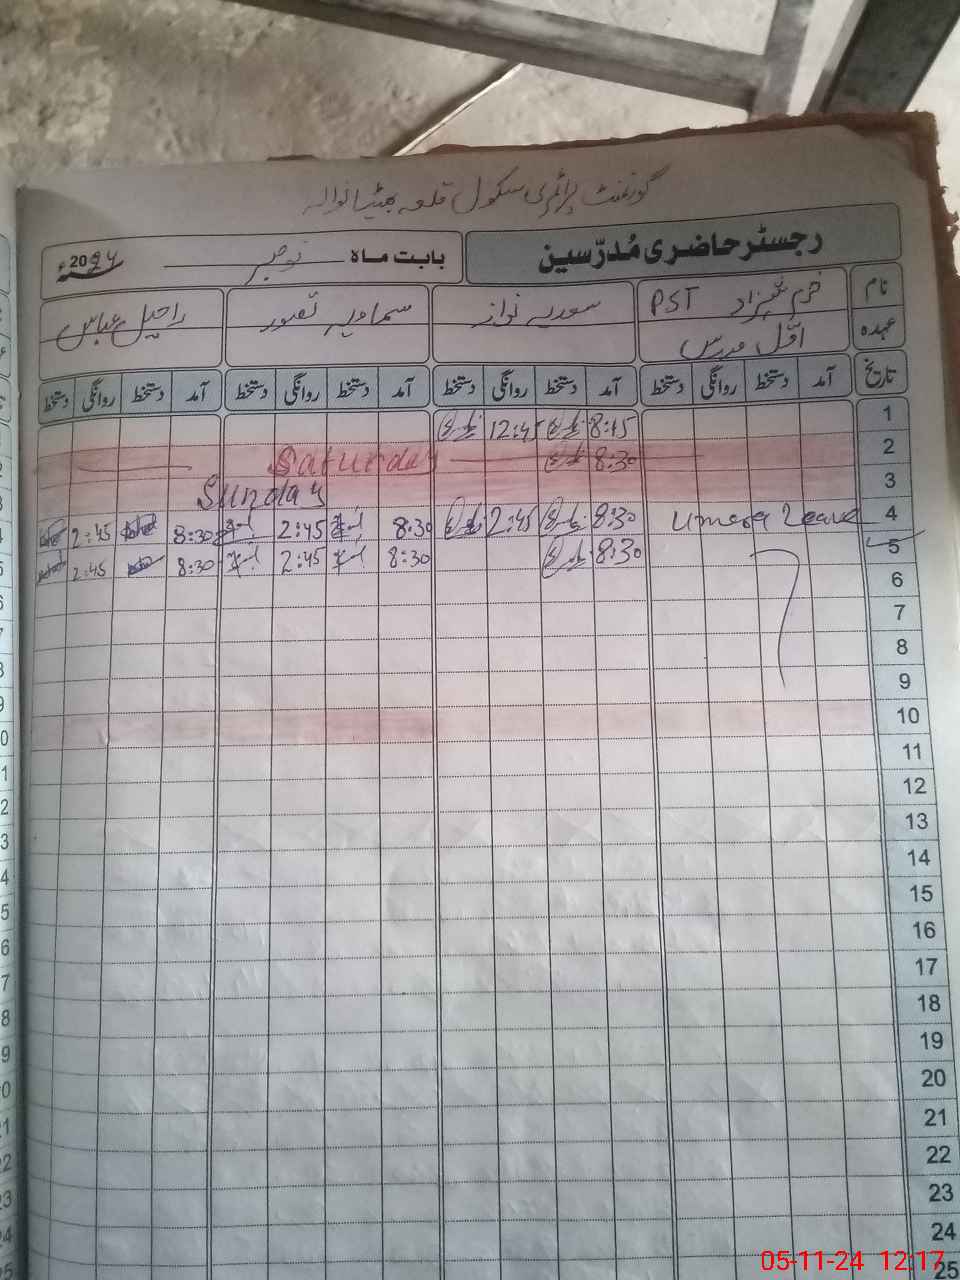 گورنمنٹ پرائمری سکول قلعہ بھٹیانوالہ
رجسٹر حاضری مُدرّسین
بابت ماہ نومبر 2024ء
نام خرم شہزاد PST سعدیہ نواز سماویہ تصور راحیل عباس
عہدہ اوّل مدرس
تاریخ آمد دستخط روانگی دستخط آمد دستخط روانگی دستخط آمد دستخط روانگی دستخط آمد دستخط روانگی دستخط
1 8:45 12:45
2 8:30 Saturday
3 Sunday
4 Umera Leave 8:30 2:45 8:30 2:45 8:30 2:45
5 8:30 8:30 2:45 8:30 2:45
6
7
8
9
10
11
12
13
14
15
16
17
18
19
20
21
22
23
24
25
05-11-24 12:17